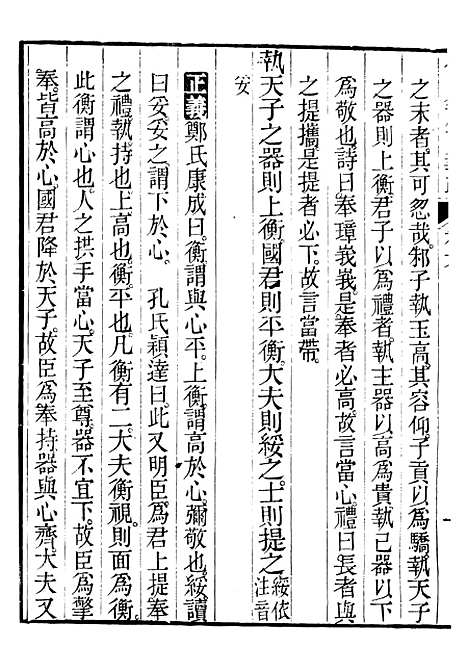 之末者其可忽哉邾子執玉高其容仰子貢以爲驕執天子
之器則上衡君子以爲禮者執主器以高爲貴執己器以下
爲敬也詩曰奉璋峩峩是奉者必高故言當心禮曰長者與
之提攜是提者必下故言當帶
執天子之器則上衡國君則平衡大夫則綏之士則提之綏依注音
妥
正義鄭氏康成曰衡謂與心平上衡謂高於心彌敬也綏讀
曰妥妥之謂下於心 孔氏穎達曰此又明臣爲君上提奉
之禮執持也上高也衡平也凡衡有二大夫衡視則面爲衡
此衡謂心也人之拱手當心天子至尊器不宜下故臣爲擎
奉皆高於心國君降於天子故臣爲奉持器與心齊大夫又